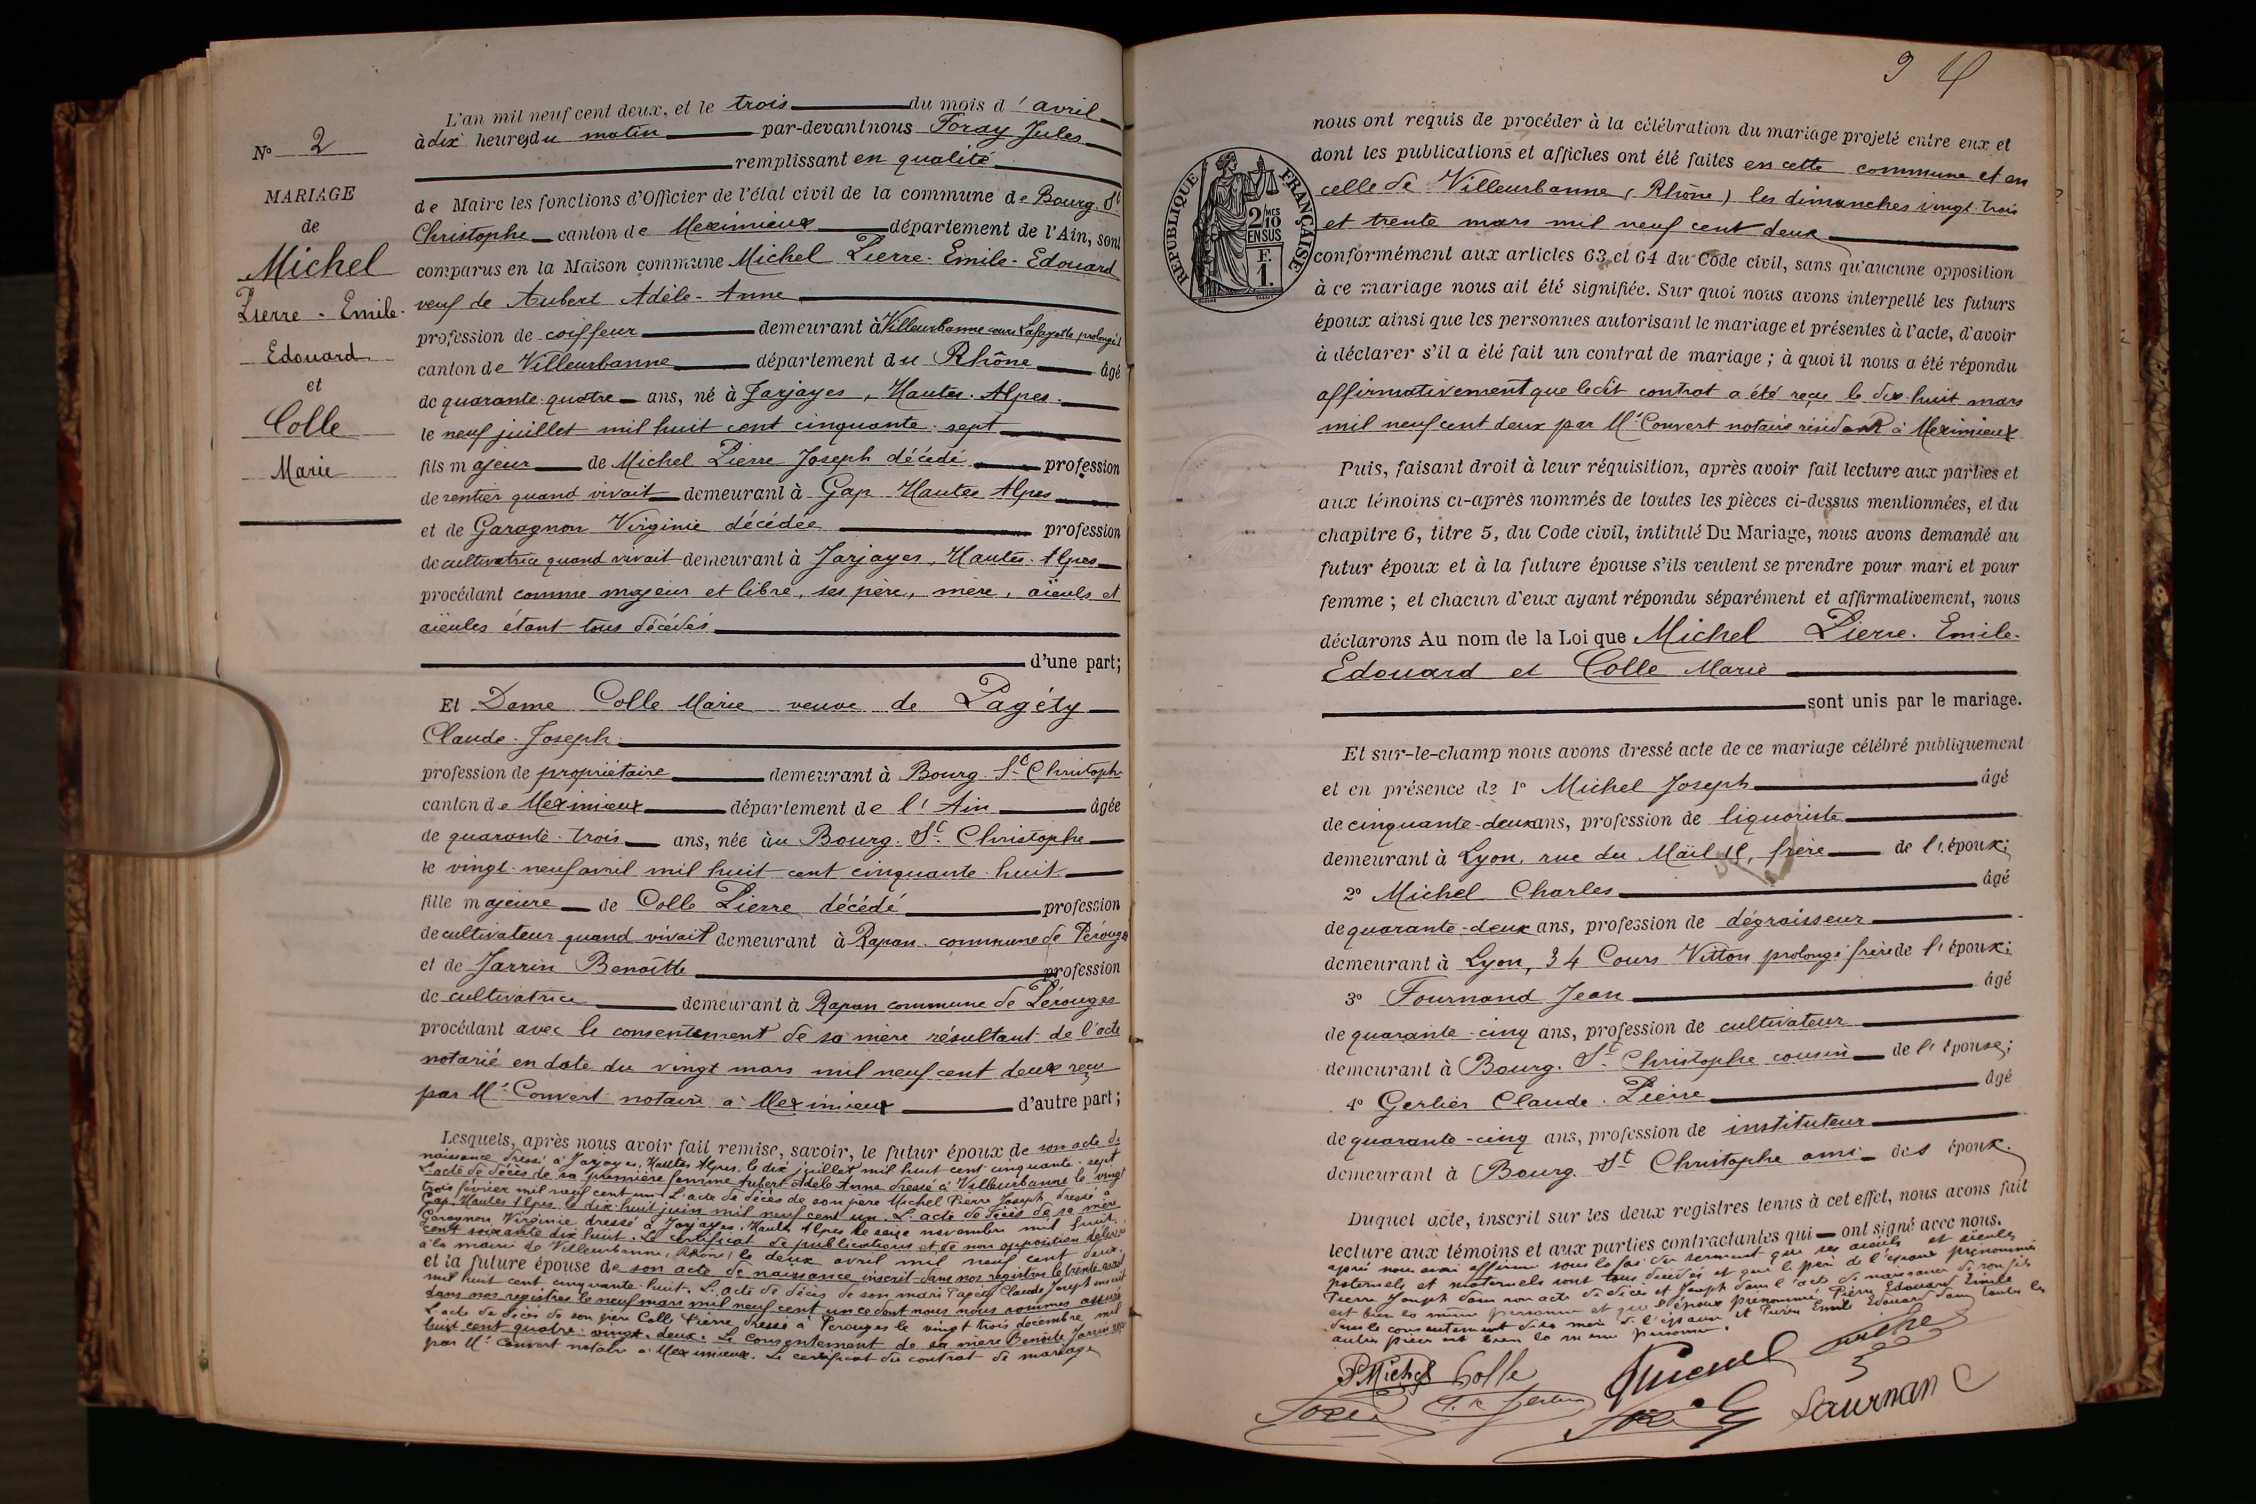 L'an mil neuf cent deux, et le trois du mois d'avril
à dix heures du matin par-devant nous Foray Jules
remplissant en qualité
de Maire les fonctions d'Officier de l'état civil de la commune de Bourg-St
Christophe canton de Meximieux département de l'Ain, sont
comparus en la Maison commune Michel Pierre-Emile-Edouard
veuf de Aubert Adèle-Anne
profession de coiffeur demeurant à Villeurbanne cours Lafayette prolongé
canton de Villeurbanne département du Rhône âgé
de quarante-quatre ans, né à Jarjayes, Hautes-Alpes
le neuf juillet mil huit cent cinquante-sept
fils majeur de Michel Pierre Joseph décédé profession
de rentier quand vivait demeurant à Gap Hautes Alpes
et de Garagnon Virginie décédée profession
de cultivatrice quand vivait demeurant à Jarjayes, Hautes-Alpes
procédant comme majeur et libre, ses père, mère, aïeuls et
aïeules étant tous décédés
d'une part;
Et Dame Colle Marie veuve de Pagéty
Claude-Joseph
profession de propriétaire demeurant à Bourg-St Christophe
canton de Meximieux département de l'Ain âgée
de quarante-trois ans, née àu Bourg-St Christophe
le vingt-neuf avril mil huit cent cinquante-huit
fille majeure de Colle Pierre décédé profession
de cultivateur quand vivait demeurant à Rapan commune de Pérouges
et de Jarrin Benoîtte profession
de cultivatrice demeurant à Rapan commune de Pérouges
procédant avec le consentement de sa mère résultant de l'acte
notarié en date du vingt mars mil neuf cent deux reçu
par Me Convert notaire à Meximieux d'autre part;
Lesquels, après nous avoir fait remise, savoir, le futur époux de son acte de
naissance dressé à Jarjayes, Hautes Alpes, le dix juillet mil huit cent cinquante-sept
L'acte de décès de sa première femme Aubert Adèle Anne dressé à Villeurbanne le vingt
trois février mil neuf cent un. L'acte de décès de son père Michel Pierre Joseph dressé à
Gap Hautes Alpes le dix-huit juin mil neuf cent un. L'acte de décès de sa mère
Garagnon Virginie dressé à Jarjayes, Hautes Alpes le seize novembre mil huit
cent soixante dix huit. Le certificat de publications et de non opposition délivré
à la mairie de Villeurbanne, Rhône, le deux avril mil neuf cent deux.
et la future épouse de son acte de naissance inscrit dans nos registres le trente avril
mil huit cent cinquante-huit. L'acte de décès de son mari Pagéty Claude Joseph inscrit
dans nos registres le neuf mars mil neuf cent un ce dont nous nous sommes assuré
L'acte de décès de son père Colle Pierre dressé à Pérouges le vingt trois décembre mil
huit cent quatre-vingt-deux. Le consentement de sa mère Benoîte Jarrin reçu
par Me Convert notaire à Meximieux. Le certificat du contrat de mariage
No 2
MARIAGE
de
Michel
Pierre-Emile-
Edouard
et
Colle
Marie
3 4
RÉPUBLIQUE FRANÇAISE
2/10 MES
EN SUS
F.
1.
nous ont requis de procéder à la célébration du mariage projeté entre eux et
dont les publications et affiches ont été faites en cette commune et en
celle de Villeurbanne (Rhône) les dimanches vingt-trois
et trente mars mil neuf cent deux
conformément aux articles 63 et 64 du Code civil, sans qu'aucune opposition
à ce mariage nous ait été signifiée. Sur quoi nous avons interpellé les futurs
époux ainsi que les personnes autorisant le mariage et présentes à l'acte, d'avoir
à déclarer s'il a été fait un contrat de mariage; à quoi il nous a été répondu
affirmativement que ledit contrat a été reçu le dix-huit mars
mil neuf cent deux par Me Convert notaire résidant à Meximieux
Puis, faisant droit à leur réquisition, après avoir fait lecture aux parties et
aux témoins ci-après nommés de toutes les pièces ci-dessus mentionnées, et du
chapitre 6, titre 5, du Code civil, intitulé Du Mariage, nous avons demandé au
futur époux et à la future épouse s'ils veulent se prendre pour mari et pour
femme; et chacun d'eux ayant répondu séparément et affirmativement, nous
déclarons Au nom de la Loi que Michel Pierre-Emile-
Edouard et Colle Marie
sont unis par le mariage.
Et sur-le-champ nous avons dressé acte de ce mariage célébré publiquement
et en présence de 1o Michel Joseph âgé
de cinquante-deux ans, profession de liquoriste
demeurant à Lyon, rue du Maïl, frère de l'époux;
2o Michel Charles âgé
de quarante-deux ans, profession de dégraisseur
demeurant à Lyon, 34 Cours Vitton prolongé frère de l'époux;
3o Fournand Jean âgé
de quarante-cinq ans, profession de cultivateur
demeurant à Bourg-St Christophe cousin de l'épouse;
4o Gerlier Claude-Pierre âgé
de quarante-cinq ans, profession de instituteur
demeurant à Bourg-St Christophe ami des époux.
Duquel acte, inscrit sur les deux registres tenus à cet effet, nous avons fait
lecture aux témoins et aux parties contractantes qui ont signé avec nous.
après nous avoir affirmé sous la foi du serment que ses aïeuls et aïeules
paternels et maternels sont tous décédés et que le père de l'époux prénommé
Pierre Joseph dans son acte de décès et Joseph dans l'acte de naissance de son fils
est bien la même personne et que l'époux prénommé Pierre Edouard Emile
dans le consentement de la mère de l'épouse et Pierre Emile Edouard dans toutes les
autres pièces est bien la même personne.
P. Michel Colle Michel
Fournand